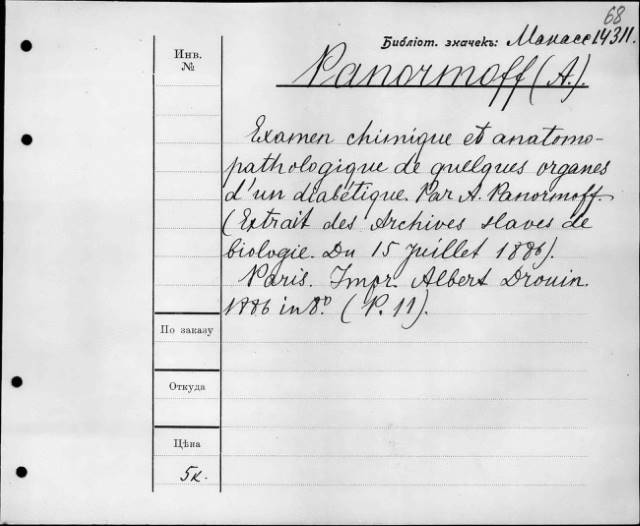 68
Библіот. значекъ: Манассе 14311.
Инв.
№
Panormoff (A.)
Examen chimique et anatomo-
pathologique de quelques organes
d'un diabétique. Par A. Panormoff.
(Extrait des Archives slaves de
biologie. Du 15 Juillet 1886).
Paris. Impr. Albert Drouin.
1886 in 8º. (P. 11).
По заказу
Откуда
Цѣна
5к.